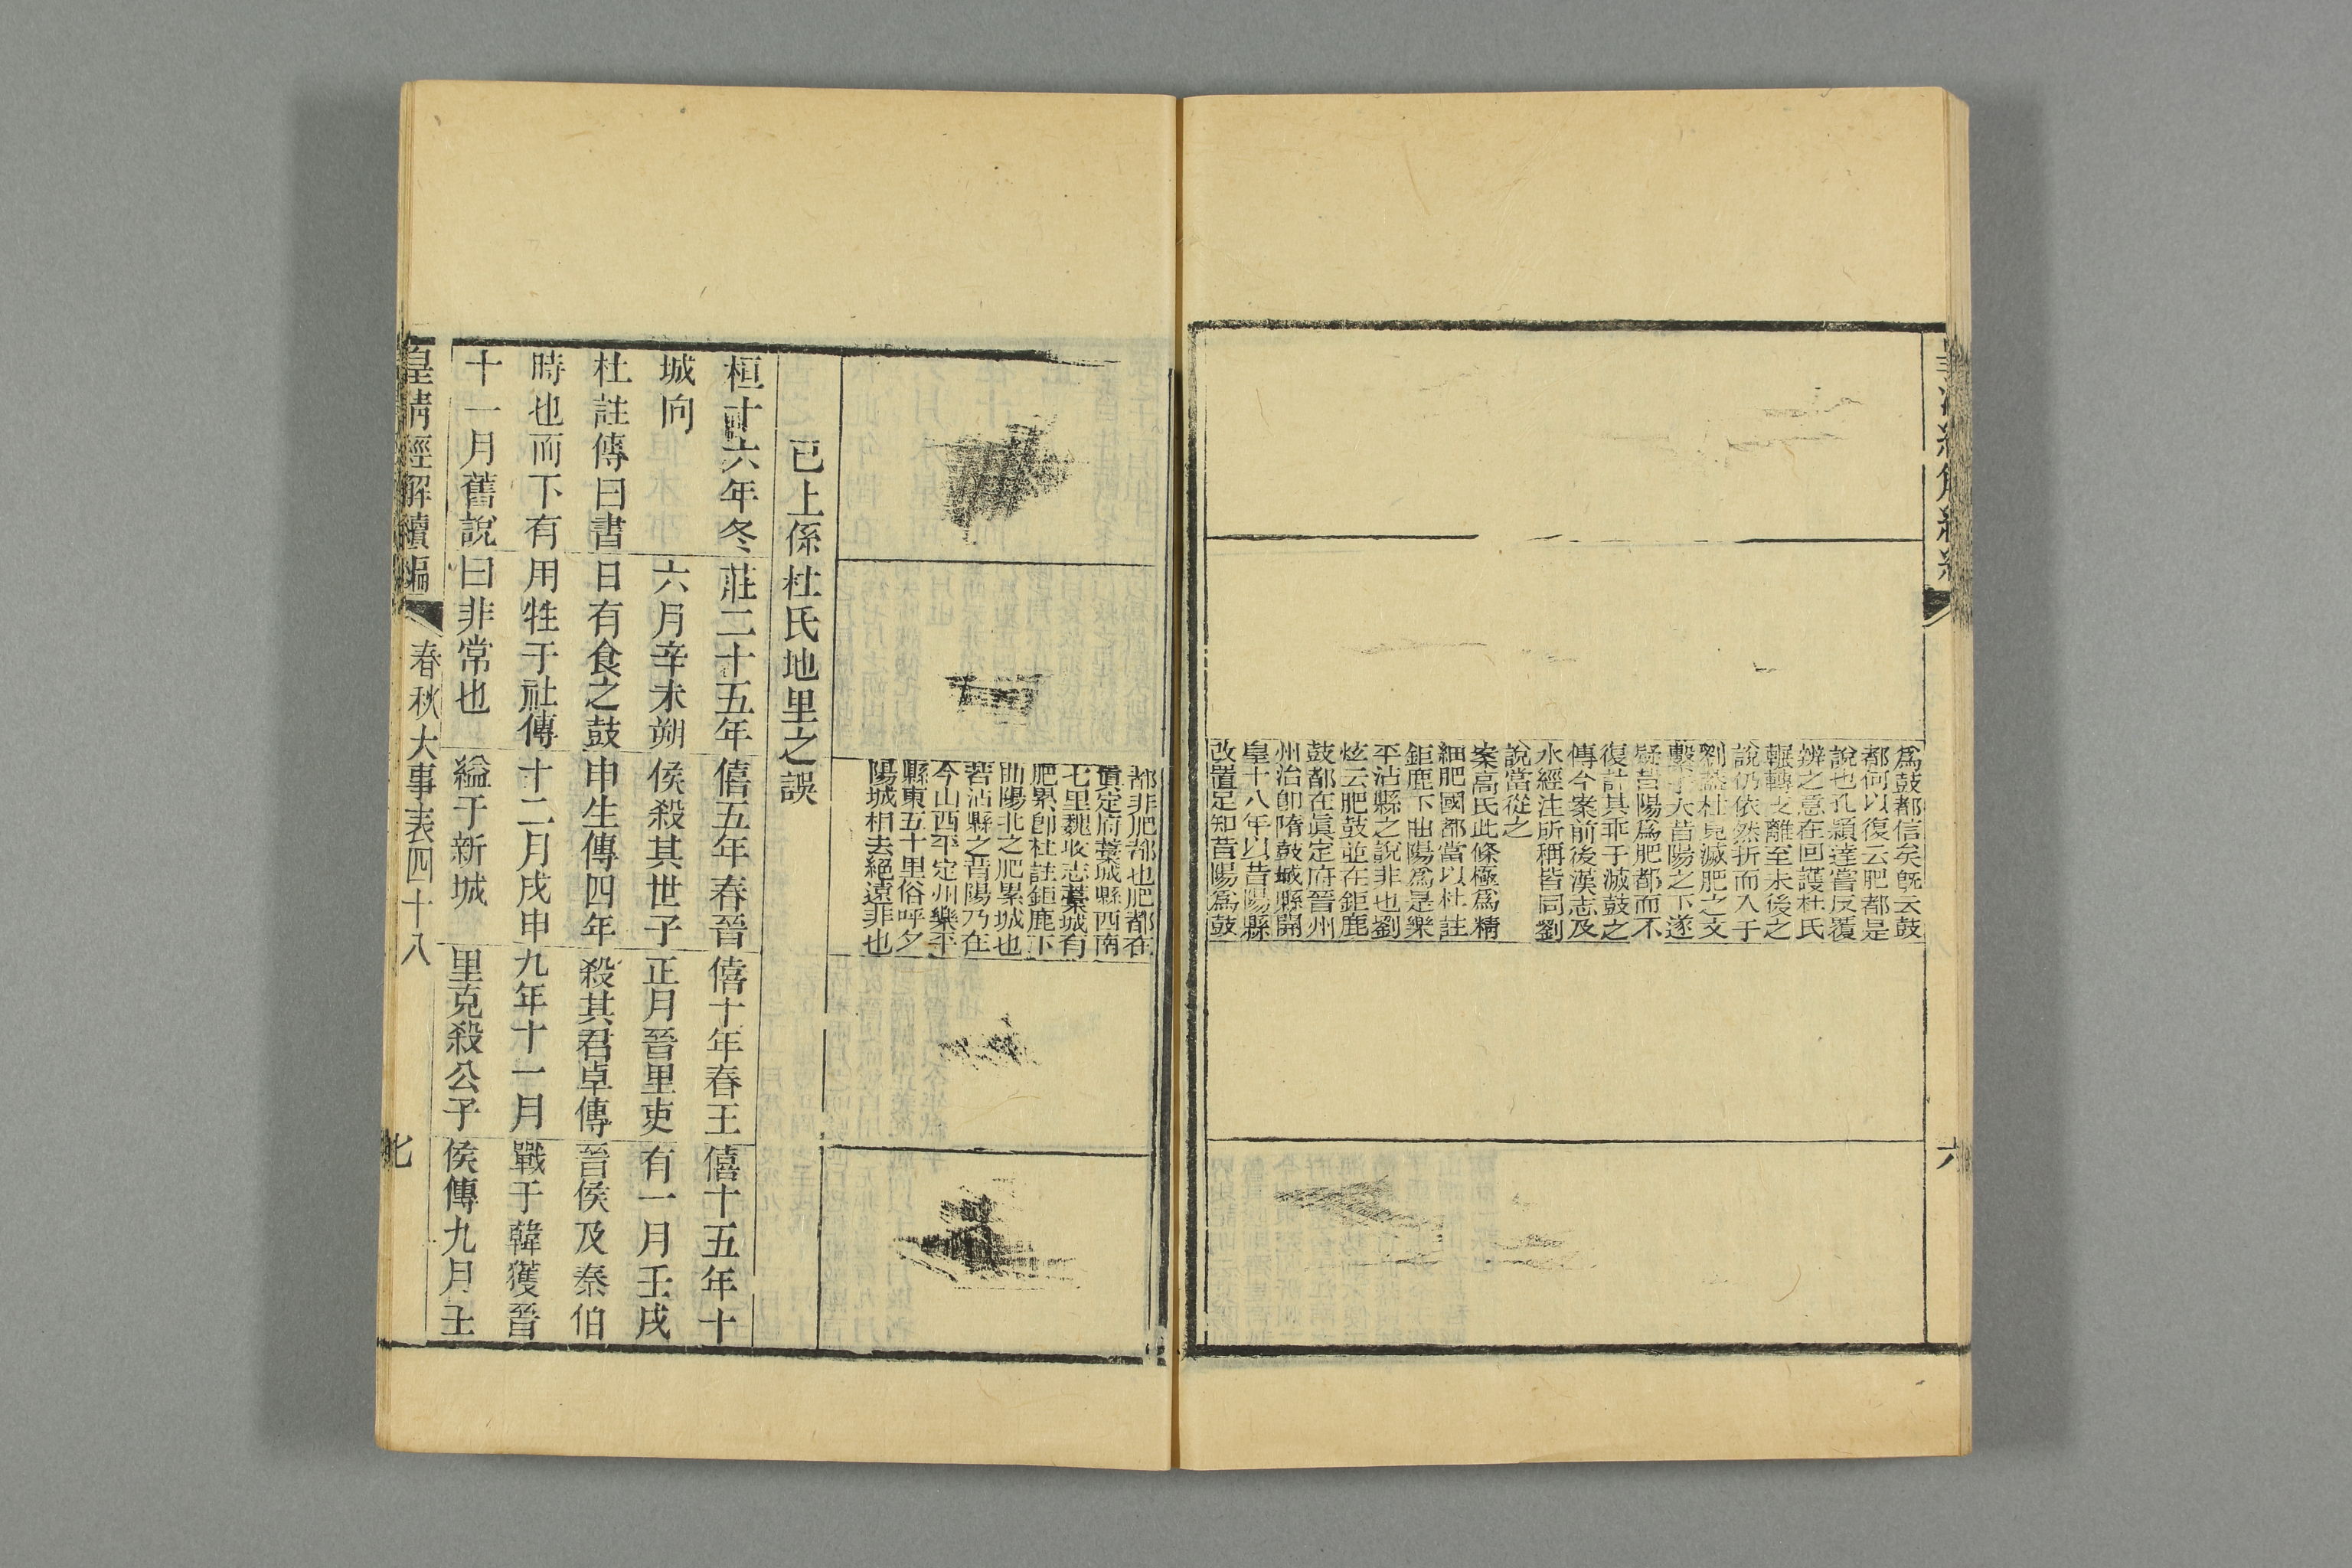 爲鼓都信矣旣云鼓
都何以復云肥都是
說也孔穎達嘗反覆
辨之意在回護杜氏
輾轉支離至末後之
說仍依然折而入于
劉蓋杜見滅肥之文
繫于入昔陽之下遂
疑昔陽爲肥都而不
復計其乖于滅鼓之
傳今案前後漢志及
水經注所稱皆同劉
說當從之
案高氏此條極爲精
細肥國都當以杜註
鉅鹿下曲陽爲是樂
平沾縣之說非也劉
炫云肥鼓並在鉅鹿
鼓都在眞定府晉州
州治卽隋鼓城縣開
皇十八年以昔陽縣
改置足知昔陽爲鼓
六
都非肥都也肥都在
眞定府藁城縣西南
七里魏收志藁城有
肥累卽杜註鉅鹿下
曲陽北之肥累城也
若沾縣之昔陽乃在
今山西平定州樂平
縣東五十里俗呼夕
陽城相去絕遠非也
已上係杜氏地里之誤
桓十六年冬
城向
杜註傳曰書
時也而下有
十一月舊說
莊二十五年
六月辛未朔
日有食之鼓
用牲于社傳
曰非常也
僖五年春晉
侯殺其世子
申生傳四年
十二月戌申
縊于新城
僖十年春王
正月晉里克
殺其君卓傳
九年十一月
里克殺公子
僖十五年十
有一月壬戌
晉侯及秦伯
戰于韓獲晉
侯傳九月壬
皇清經解續編
春秋大事表四十八